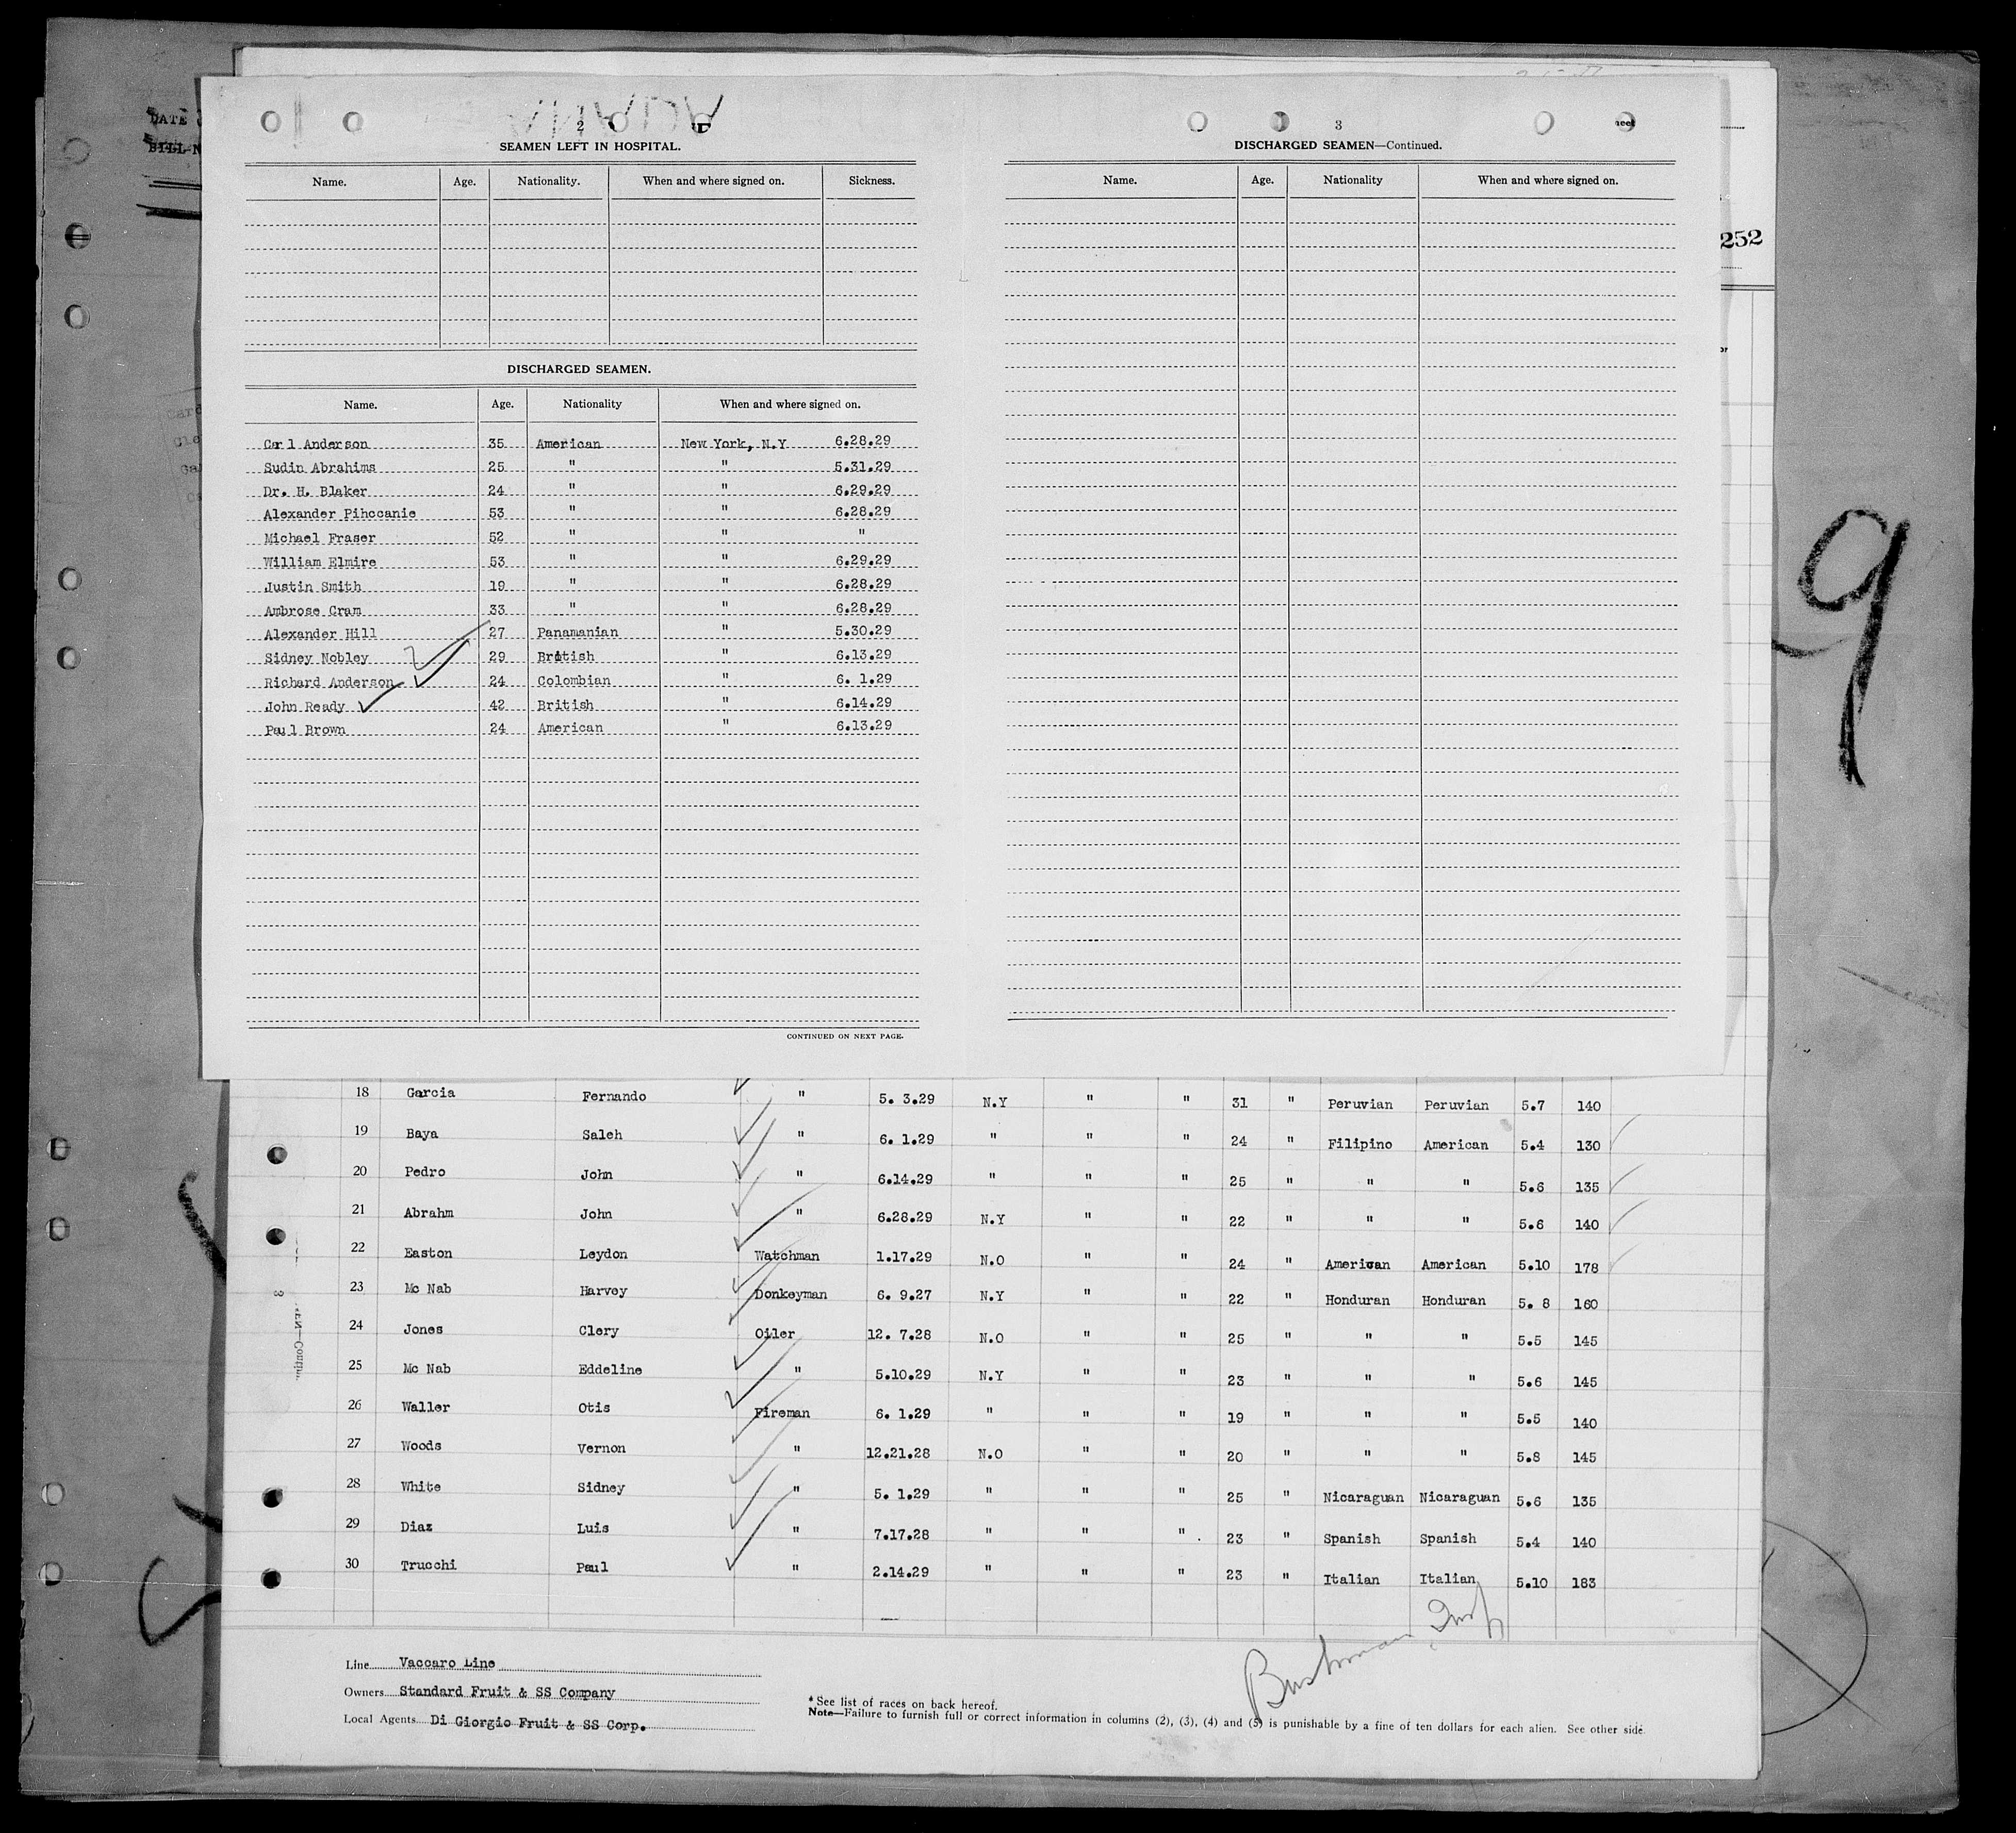 DATE
BILL N
2
SEAMEN LEFT IN HOSPITAL.
Name. Age. Nationality. When and where signed on. Sickness.
DISCHARGED SEAMEN.
Name. Age. Nationality When and where signed on.
Carl Anderson 35 American New York, N.Y 6.28.29
Sudin Abrahims 25 " " 5.31.29
Dr. H. Blaker 24 " " 6.29.29
Alexander Pihccanie 53 " " 6.28.29
Michael Fraser 52 " " "
William Elmire 53 " " 6.29.29
Justin Smith 19 " " 6.28.29
Ambrose Cram 33 " " 6.28.29
Alexander Hill 27 Panamanian " 5.30.29
Sidney Nobley 29 British " 6.13.29
Richard Anderson 24 Colombian " 6. 1.29
John Ready 42 British " 6.14.29
Paul Brown 24 American " 6.13.29
CONTINUED ON NEXT PAGE.
3
DISCHARGED SEAMEN—Continued.
Name. Age. Nationality When and where signed on.
252
9
18 Garcia Fernando " 5. 3.29 N.Y " " 31 " Peruvian Peruvian 5.7 140
19 Baya Saleh " 6. 1.29 " " " 24 " Filipino American 5.4 130
20 Pedro John " 6.14.29 " " " 25 " " " 5.6 135
21 Abrahm John " 6.28.29 N.Y " " 22 " " " 5.6 140
22 Easton Leydon Watchman 1.17.29 N.O " " 24 " American American 5.10 178
23 Mc Nab Harvey Donkeyman 6. 9.27 N.Y " " 22 " Honduran Honduran 5. 8 160
24 Jones Clery Oiler 12. 7.28 N.O " " 25 " " " 5.5 145
25 Mc Nab Eddeline " 5.10.29 N.Y " " 23 " " " 5.6 145
26 Waller Otis Fireman 6. 1.29 " " " 19 " " " 5.5 140
27 Woods Vernon " 12.21.28 N.O " " 20 " " " 5.8 145
28 White Sidney " 5. 1.29 " " " 25 " Nicaraguan Nicaraguan 5.6 135
29 Diaz Luis " 7.17.28 " " " 23 " Spanish Spanish 5.4 140
30 Trucchi Paul " 2.14.29 " " " 23 " Italian Italian 5.10 183
Line Vaccaro Line
Owners Standard Fruit & SS Company
Local Agents Di Giorgio Fruit & SS Corp.
* See list of races on back hereof.
Note—Failure to furnish full or correct information in columns (2), (3), (4) and (5) is punishable by a fine of ten dollars for each alien. See other side.